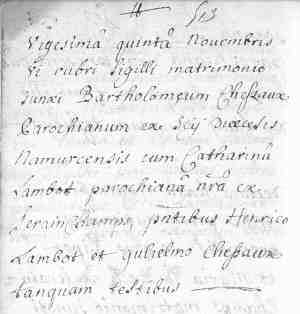 Vigesimâ quintâ Novembris
Vi rubri sigilli matrimonio
Junxi Bartholomæum Chessaux
Parochianum ex Diœcesis
Namurcensis cum Catharinâ
Lambot parochianâ nrâ ex
Serainchamps pntibus Henrico
Lambot et gulielmo Chessaux
tanquam testibus